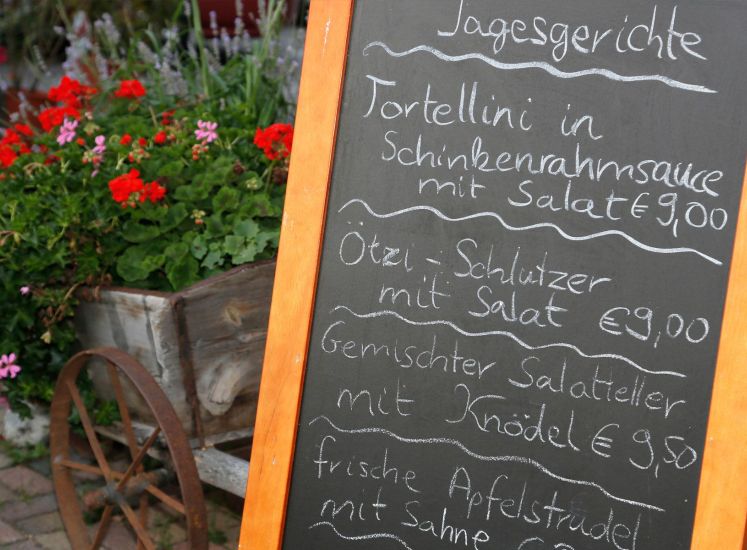 Tagesgerichte
Tortellini in
Schinkenrahmsauce
mit Salat € 9,00
Ötzi - Schlutzer
mit Salat € 9,00
Gemischter Salatteller
mit Knödel € 9,50
frische Apfelstrudel
mit Sahne €